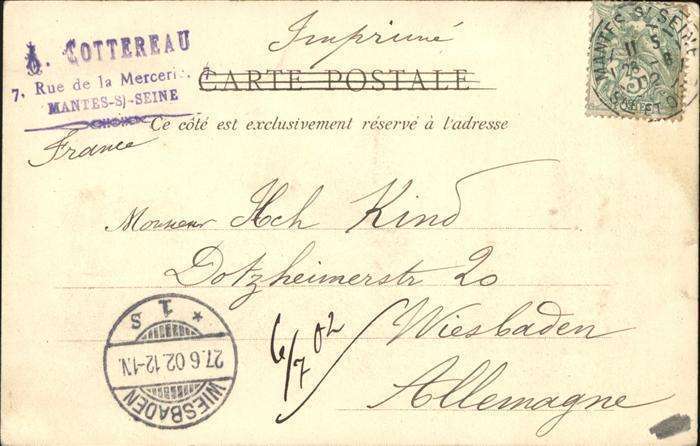 Imprimé
A. COTTEREAU
7. Rue de la Mercerie, 7
MANTES-S/-SEINE
CARTE POSTALE
Ce côté est exclusivement réservé à l'adresse
France
MANTES-S/-SEINE
Monsieur Hch Kind
Dotzheimerstr 20
Wiesbaden
Allemagne
6/7 02
* 1 S
27.6 02 12-1N.
WIESBADEN